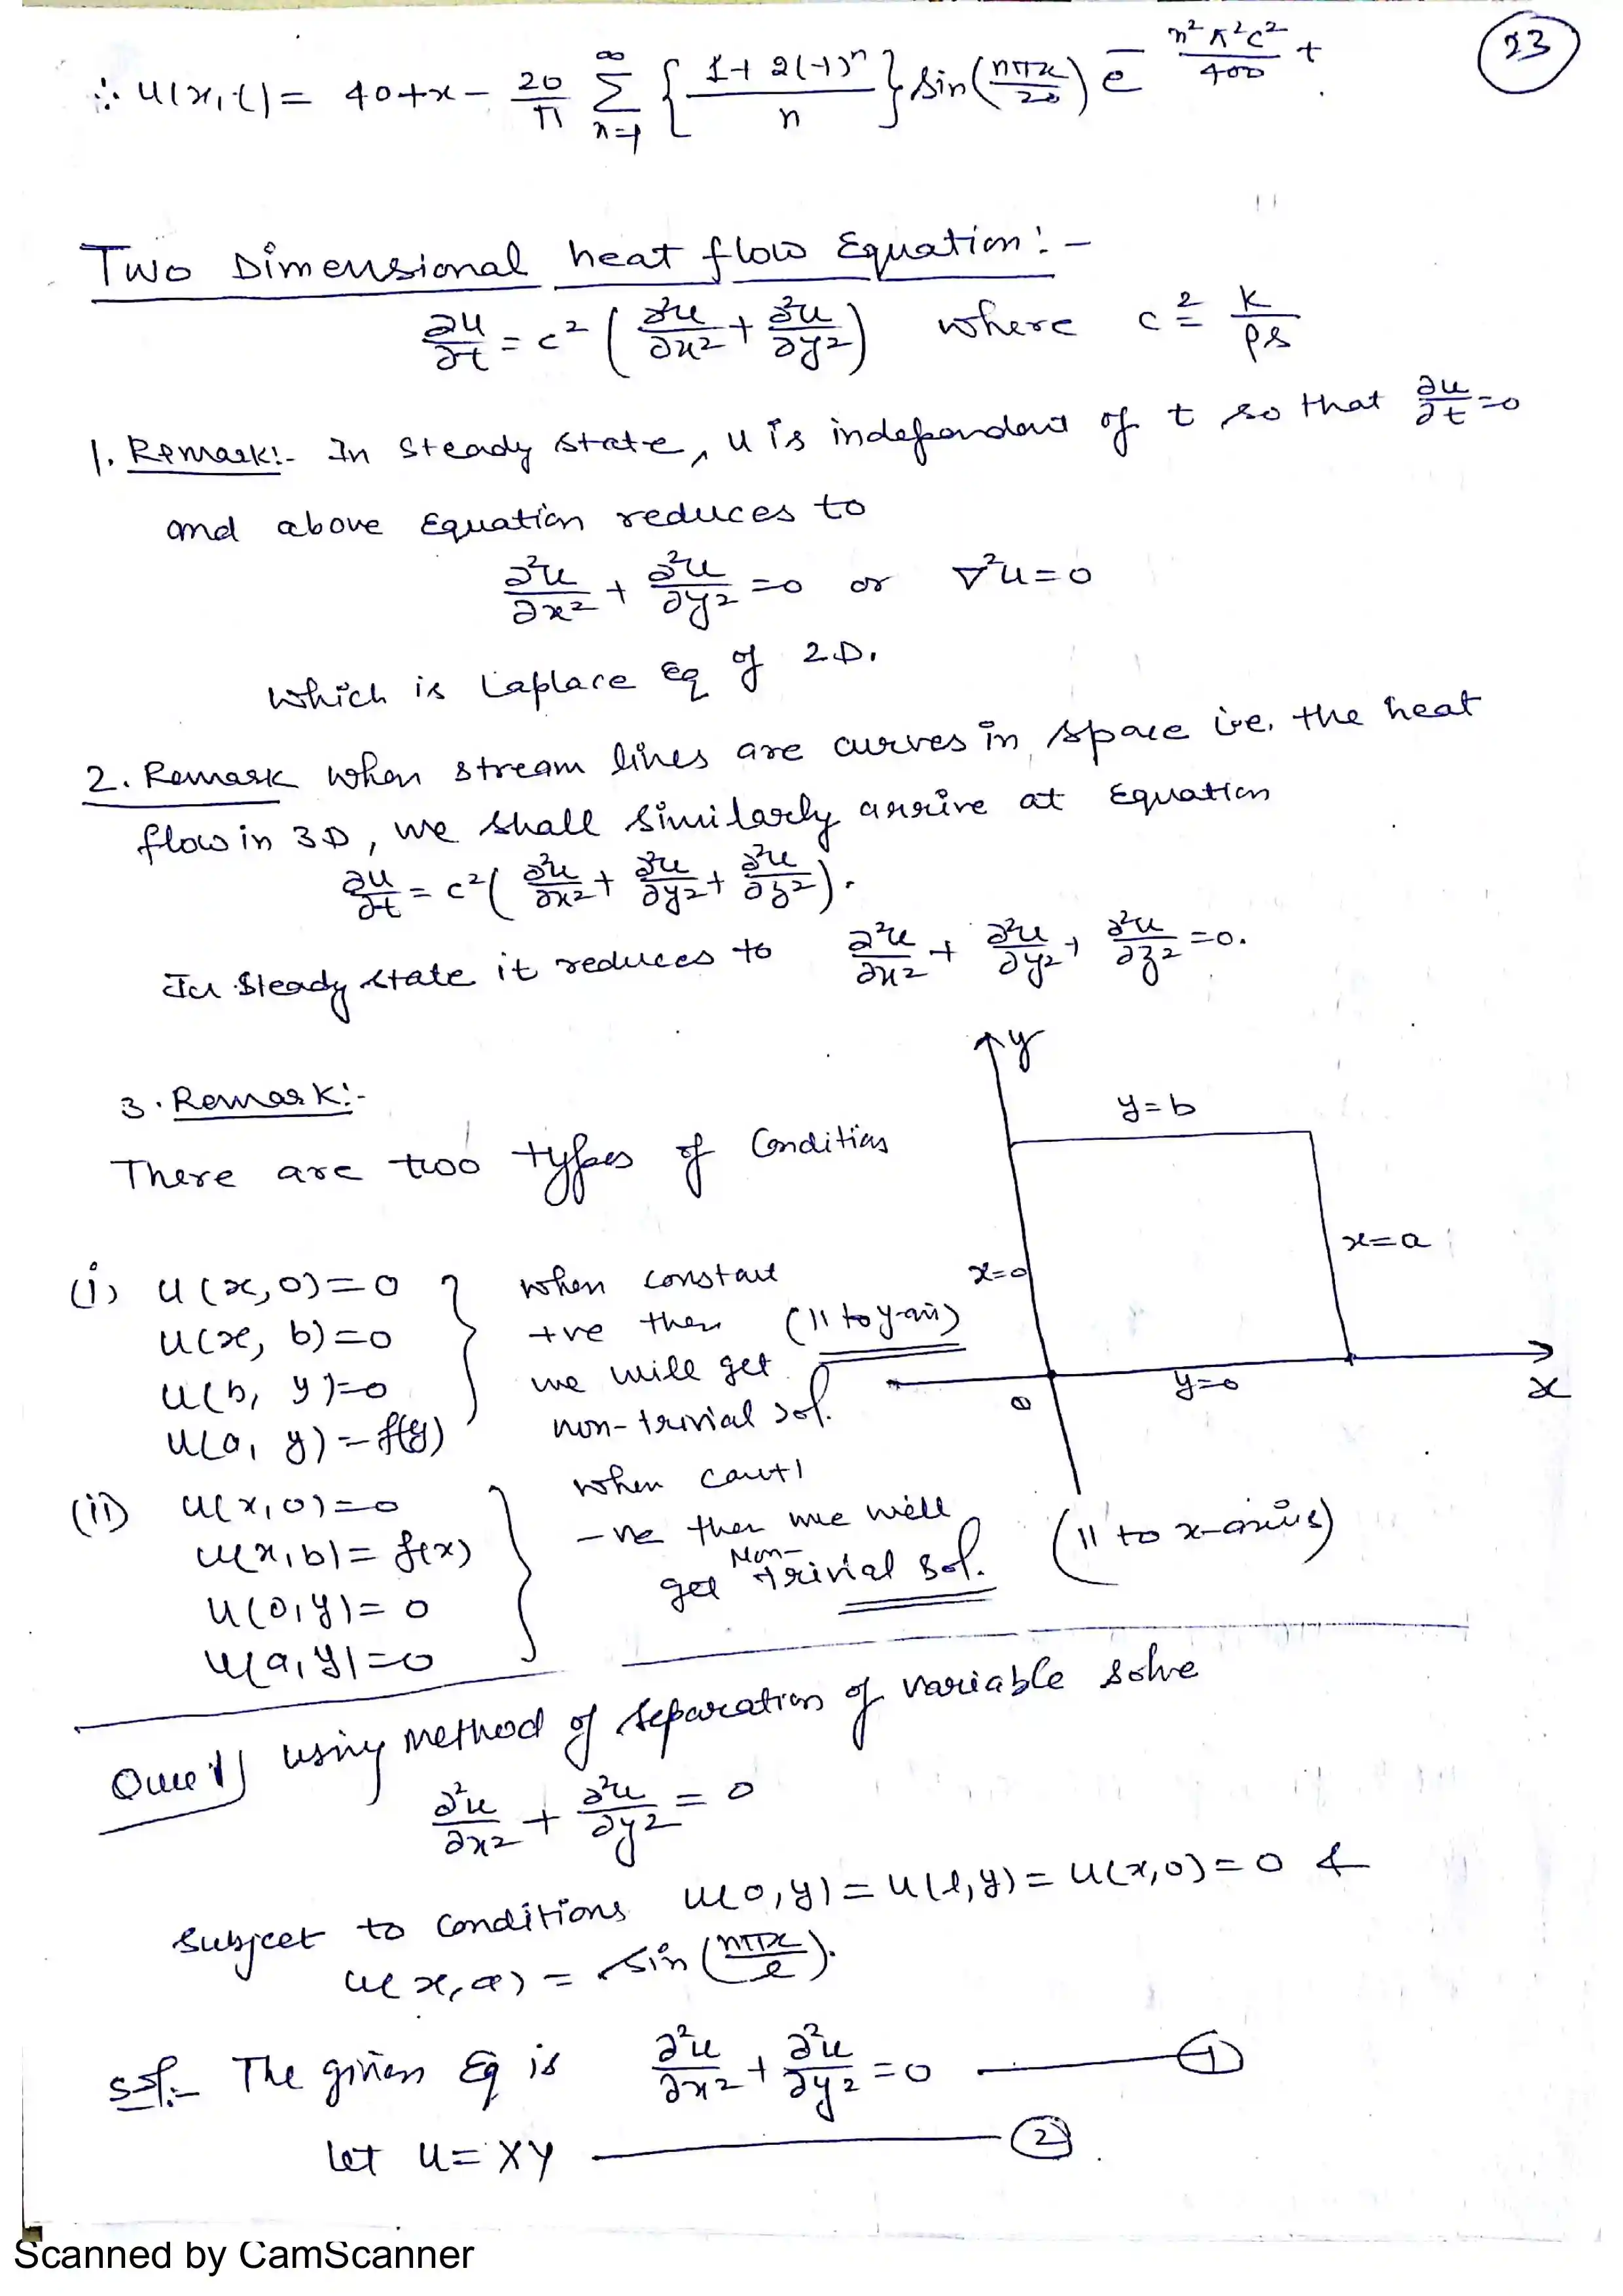 23
∴ u(x,t) = 40+x - 20/π ∑_{n=1}^{∞} { 1+2(-1)^n / n } sin(nπx/20) e^{- n²π²c²/400 t}.
Two Dimensional heat flow Equation:-
∂u/∂t = c² ( ∂²u/∂x² + ∂²u/∂y² ) where c² = k/ρs
1. Remark:- In steady state, u is independent of t so that ∂u/∂t = 0
and above Equation reduces to
∂²u/∂x² + ∂²u/∂y² = 0 or ∇²u = 0
which is Laplace Eq of 2D.
2. Remark when stream lines are curves in space i.e. the heat
flow in 3D, we shall similarly arrive at Equation
∂u/∂t = c² ( ∂²u/∂x² + ∂²u/∂y² + ∂²u/∂z² ).
In steady state it reduces to ∂²u/∂x² + ∂²u/∂y² + ∂²u/∂z² = 0.
3. Remark:-
There are two types of Conditions
y
y=b
x=a
x=0
y=0
0
x
(i) u(x,0)=0
u(x, b)=0
u(b, y)=0
u(a, y) = f(y)
when constant
+ve then (11 to y-axis)
we will get
non-trivial sol.
(ii) u(x,0)=0
u(x,b) = f(x)
u(0,y) = 0
u(a,y)=0
when const
-ve then we will
get Non-trivial sol. (11 to x-axis)
Que 1) using method of separation of variable solve
∂²u/∂x² + ∂²u/∂y² = 0
subject to conditions u(0,y) = u(l,y) = u(x,0) = 0 &
u(x,a) = sin(nπx/l).
sol:- The given Eq is ∂²u/∂x² + ∂²u/∂y² = 0 — 1
let u = XY — 2
Scanned by CamScanner